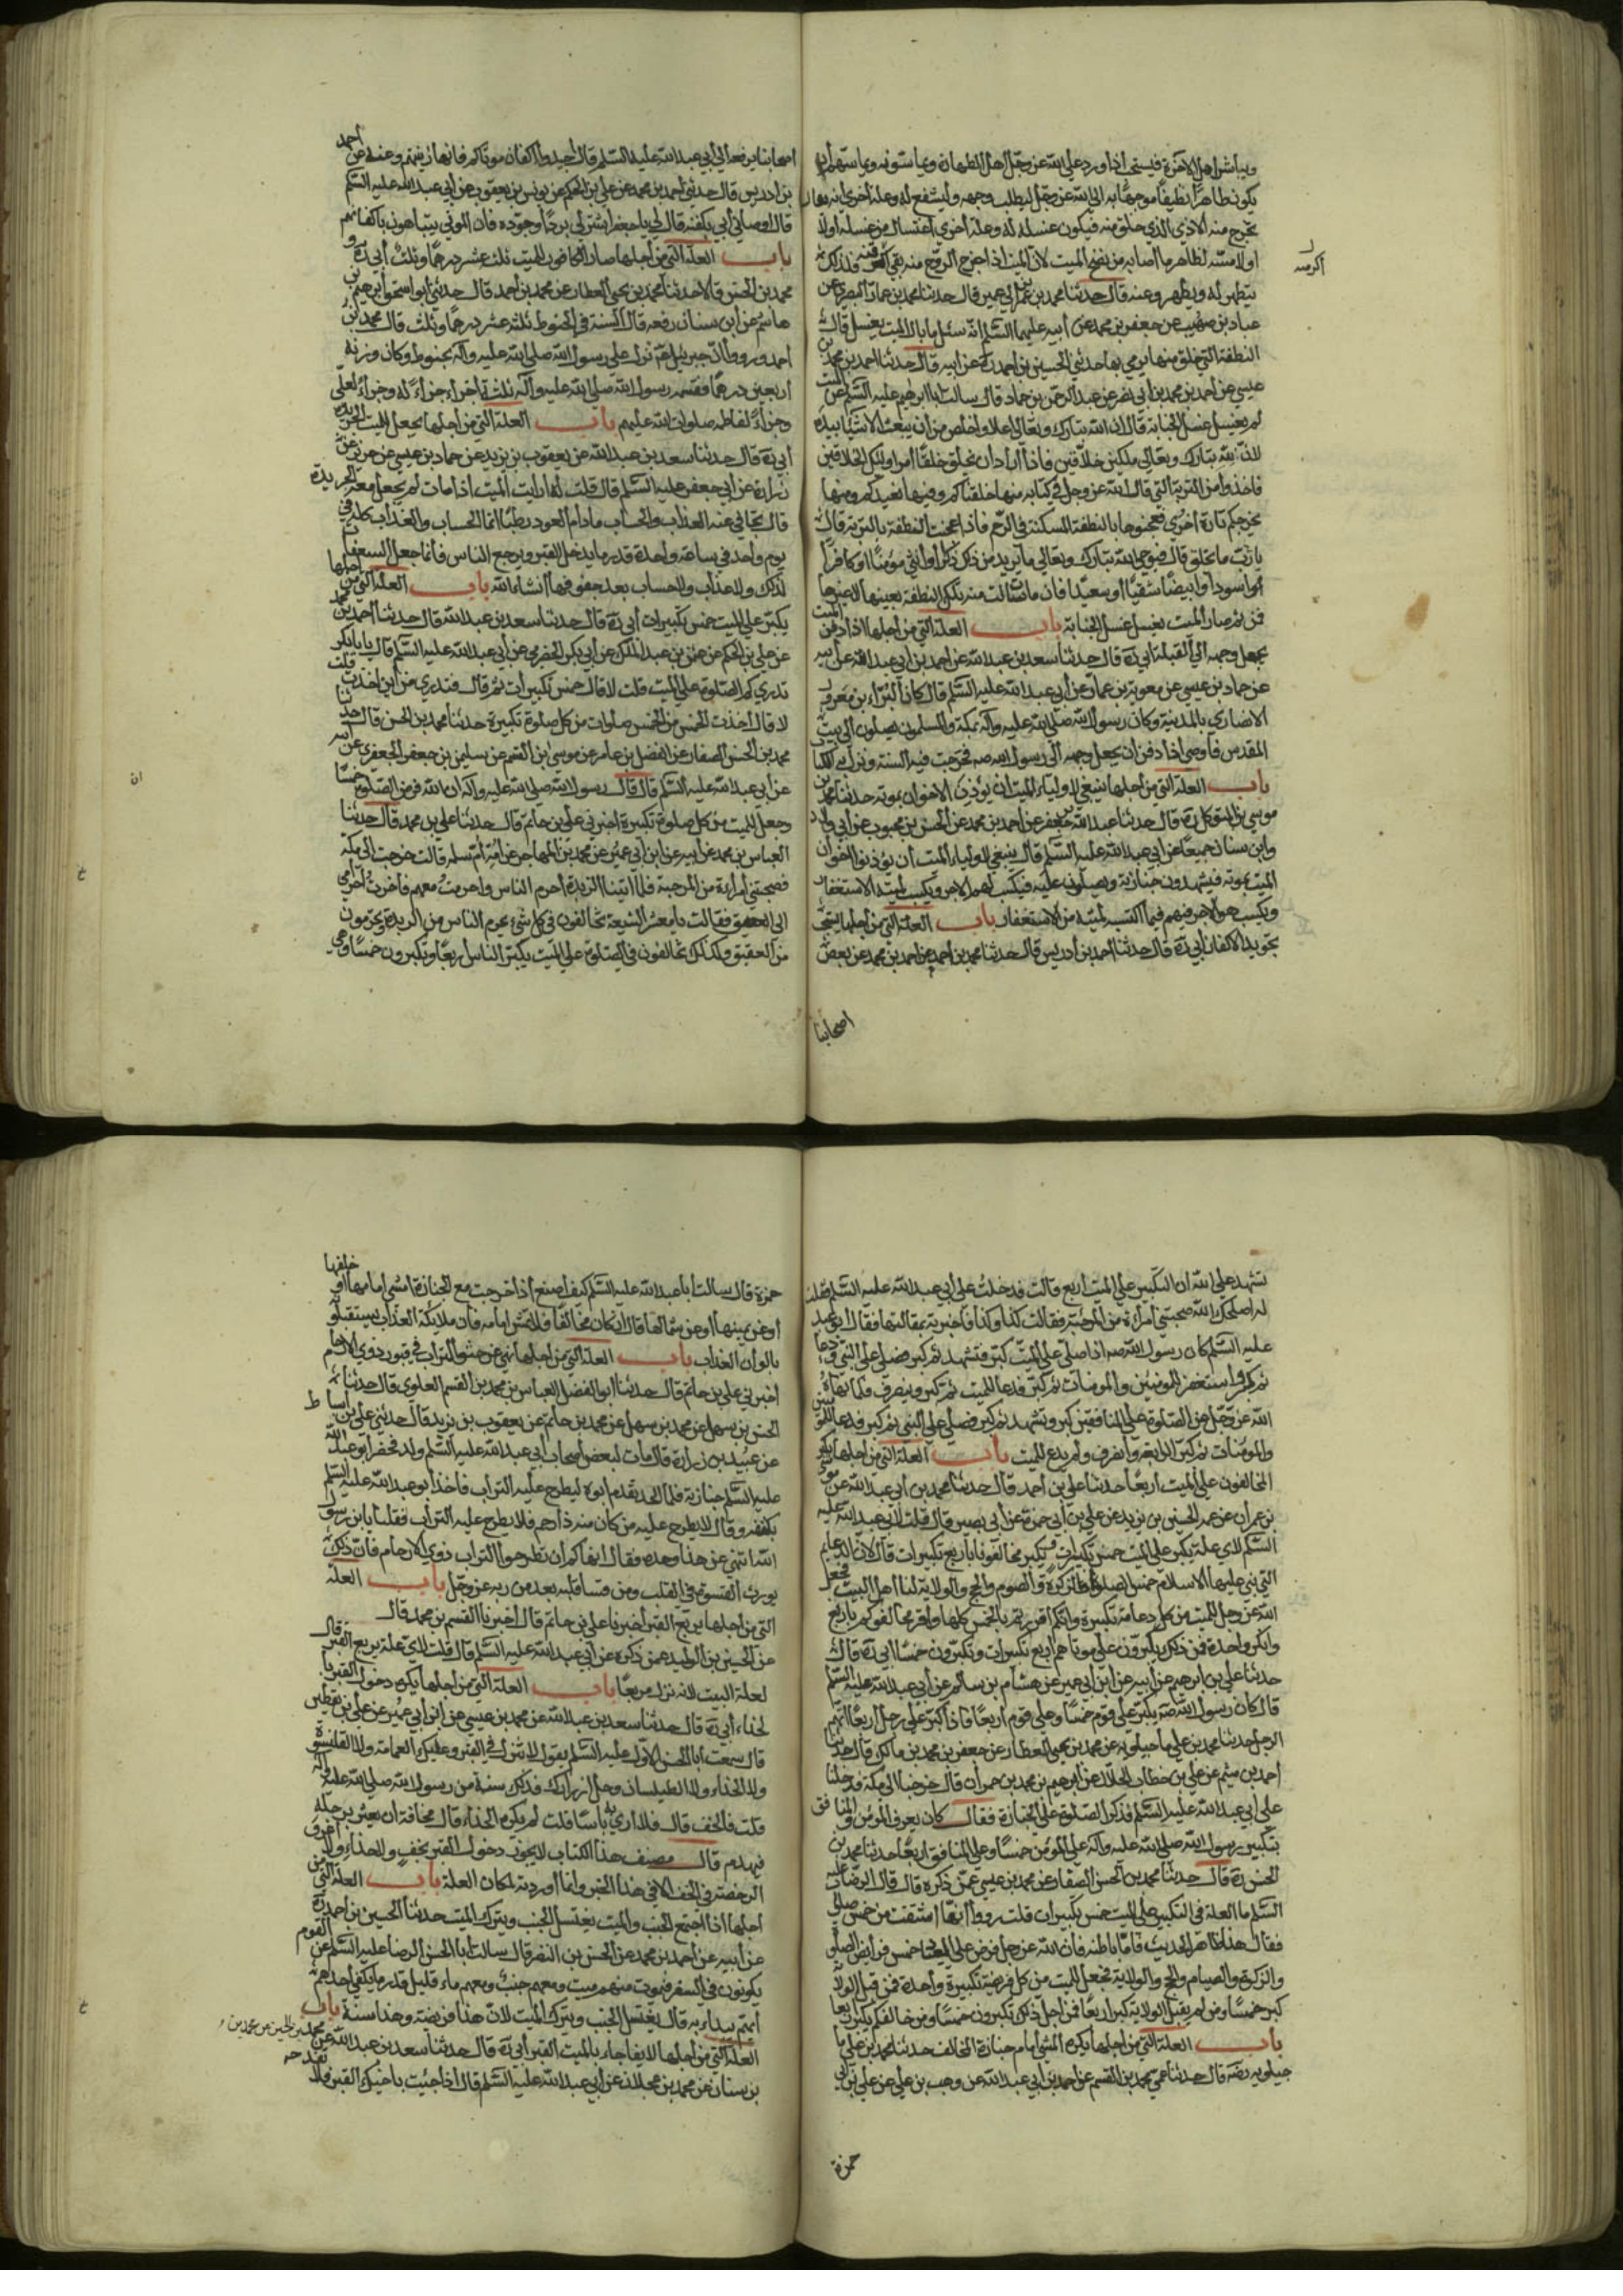 ويباشر اهل الآخرة فيستحب اذا ورد على الله عز وجل اهل الطهارة ويماسونه ويماسهم ان
يكون طاهرا نظيفا موجها به الى الله عز وجل ليطلب وجهه وليشفع له وعلة اخرى انه يقال
يخرج منه الاذى الذي خلق منه فيكون غسله له وعلة اخرى اغتسال من غسله اولا
او لامسه لظاهر ما اصابه من نضح الميت لان الميت اذا خرج الروح منه بقي اكثر آفته فلذلك
يتطهر له ويطهر وعنه قال حدثنا محمد بن ابي عمير قال حدثنا محمد بن عمار البصري عن
عباد بن صهيب عن جعفر بن محمد عن ابيه عليهما السلم انه سئل ما بال الميت يغسل قال
النطفة التي خلق منها يرمي بها حدثني الحسين بن احمد ره عن ابيه قال حدثنا احمد بن محمد بن
عيسى عن احمد بن محمد بن ابي نصر عن عبد الرحمن بن حماد قال سالت ابا ابراهيم عليه السلم عن الميت
لم يغسل غسل الجنابة قال ان الله تبارك وتعالى اعلا واخلص من ان يبعث الاشياء بيده
لان لله تبارك وتعالى ملكين خلاقين فاذا اراد ان يخلق خلقا امر اولئك الخلاقين
فاخذوا من التربة التي قال الله عز وجل في كتابه منها خلقناكم وفيها نعيدكم ومنها
نخرجكم تارة اخرى فعجنوها بالنطفة المسكنة في الرحم فاذا عجنت النطفة بالتربة قال
يا رب ما نخلق قال فيوحي الله تبارك وتعالى ما يريد من ذلك ذكرا او انثى مؤمنا او كافرا
او اسود او ابيض شقيا او سعيدا فان مات سالت منه تلك النطفة بعينها لا غيرها
فمن ثم صار الميت يغسل غسل الجنابة باب العلة التي من اجلها اذا دفن الميت
يجعل وجهه الى القبلة ابي ره قال حدثنا سعد بن عبد الله عن احمد بن ابي عبد الله عن ابيه
عن حماد بن عيسى عن معوية بن عمار عن ابي عبد الله عليه السلم قال كان البراء بن معرور
الانصاري بالمدينة وكان رسول الله صلى الله عليه وآله بمكة والمسلمون يصلون الى بيت
المقدس فاوصى اذا دفن ان يجعل وجهه الى رسول الله صه فجرت فيه السنة ونزل به الكتاب
باب العلة التي من اجلها ينبغي لاولياء الميت ان يؤذنوا الاخوان بموته حدثنا محمد بن
موسى بن المتوكل ره قال حدثنا عبد الله بن جعفر عن احمد بن محمد عن الحسن بن محبوب عن ابي ولاد
وابن سنان جميعا عن ابي عبد الله عليه السلم قال ينبغي لاولياء الميت ان يؤذنوا اخوان
الميت بموته فيشهدون جنازته ويصلون عليه فيكسب لهم الاجر ويكسب لميته الاستغفار
ويكسب هو الاجر فيهم فيما اكتسب لميته من الاستغفار باب العلة التي من اجلها يستحب
تجويد الاكفان ابي ره قال حدثنا احمد بن ادريس قال حدثنا محمد بن احمد عن احمد بن محمد عن بعض
اصحابنا
اصحابنا يرفعه الى ابي عبد الله عليه السلم قال اجيدوا اكفان موتاكم فانها زينتهم وعنه عن احمد
بن ادريس قال حدثني احمد بن محمد عن علي بن الحكم عن يونس بن يعقوب عن ابي عبد الله عليه السلم
قال اوصاني ابي بكفنه قال لي يا جعفر اشتر لي بردا وجوده فان الموتى يتباهون باكفانهم
باب العلة التي من اجلها صار الكافور للميت ثلث عشر درهما وثلث ابي ره و
محمد بن الحسن قالا حدثنا محمد بن يحيى العطار عن محمد بن احمد قال حدثني ابو اسحق ابرهيم بن
هاشم عن ابن سنان رفعه قال السنة في الحنوط ثلثة عشر درهما وثلث قال محمد بن
احمد ورووا ان جبرئيل عم نزل على رسول الله صلى الله عليه وآله بحنوط وكان وزنه
اربعين درهما فقسمه رسول الله صلى الله عليه وآله ثلثة اجزاء جزءا له وجزءا لعلي
وجزءا لفاطمة صلوات الله عليهم باب العلة التي من اجلها يجعل للميت الجريدة
ابي ره قال حدثنا سعد بن عبد الله عن يعقوب بن يزيد عن حماد بن عيسى عن حريز عن
زرارة عن ابي جعفر عليه السلم قال قلت له ارايت الميت اذا مات لم يجعل معه الجريدة
قال يتجافى عنه العذاب والحساب ما دام العود رطبا انما الحساب والعذاب كله في
يوم واحد في ساعة واحدة قدر ما يدخل القبر ويرجع الناس فانما جعل السعفتان
لذلك ولا عذاب ولا حساب بعد جفوفهما انشاء الله باب العلة التي من اجلها
يكبر على الميت خمس تكبيرات ابي ره قال حدثنا سعد بن عبد الله قال حدثنا احمد بن محمد
عن علي بن الحكم عن عثمن بن عبد الملك عن ابي بكر الحضرمي عن ابي عبد الله عليه السلم قال يا با بكر
تدري كم الصلوة على الميت قلت لا قال خمس تكبيرات ثم قال فتدري من اين اخذت قلت
لا قال اخذت الخمس من الخمس صلوات من كل صلوة تكبيرة حدثنا محمد بن الحسن قال حدثنا
محمد بن الحسن الصفار عن الفضل بن عامر عن موسى ابن القسم عن سليمن بن جعفر الجعفري عن ابيه
عن ابي عبد الله عليه السلم قال قال رسول الله صلى الله عليه وآله ان الله فرض الصلوة خمسا
وجعل للميت من كل صلوة تكبيرة اخبرني علي بن حاتم قال حدثنا علي بن محمد قال حدثنا
العباس بن محمد عن ابيه عن ابن ابي عمير عن محمد بن المهاجر عن امه ام سلمة قالت خرجت الى مكة
فصحبتني امراءة من المرجئة فلما اتينا الربذة احرم الناس واحرمت معهم فاخرت احرامي
الى العقيق فقالت يا معشر الشيعة تخالفون في كل شيء يحرم الناس من الربذة وتحرمون
من العقيق وكذلك تخالفون في الصلوة على الميت يكبر الناس اربعا وتكبرون خمسا وهي
تشهد على الله ان التكبير على الميت اربع قالت فدخلت على ابي عبد الله عليه السلم فقلت
له اصلحك الله صحبتني امراءة من المرجئة فقالت كذا وكذا فاخبرته بمقالتها فقال ابو عبد الله
عليه السلم كان رسول الله صه اذا صلى على الميت كبر فتشهد ثم كبر فصلى على النبي ودعا
ثم كبر واستغفر للمؤمنين والمؤمنات ثم كبر فدعا للميت ثم كبر وينصرف فلما نهاه
الله عز وجل عن الصلوة على المنافقين كبر وتشهد ثم كبر فصلى على النبي ثم كبر فدعا للمؤمنين
والمؤمنات ثم كبر الرابعة وانصرف ولم يدع للميت باب العلة التي من اجلها يكبر
المخالفون على الميت اربعا حدثنا علي بن احمد قال حدثنا محمد بن ابي عبد الله عن موسى
بن عمران عن عمه الحسين بن يزيد عن علي بن ابي حمزة عن ابي بصير قال قلت لابي عبد الله عليه
السلم لاي علة يكبر على الميت خمس تكبيرات ويكبر مخالفونا باربع تكبيرات قال لان الدعايم
التي بني عليها الاسلام خمس الصلوة والزكوة والصوم والحج والولاية لنا اهل البيت فجعل
الله عز وجل للميت من كل دعامة تكبيرة وانكم اقررتم بالخمس كلها واقر مخالفوكم باربع
وانكروا واحدة فمن ذلك يكبرون على موتاهم اربع تكبيرات وتكبرون خمسا ابي ره قال
حدثنا علي بن ابرهيم عن ابيه عن ابن ابي عمير عن هشام بن سالم عن ابي عبد الله عليه السلم
قال كان رسول الله صه يكبر على قوم خمسا وعلى قوم اربعا فاذا كبر على رجل اربعا اتهم
الرجل حدثنا محمد بن علي ماجيلويه عن محمد بن يحيى العطار عن جعفر بن محمد بن مالك قال حدثنا
احمد بن هيثم عن علي بن خطاب الخلال عن ابرهيم بن محمد بن حمران قال خرجنا الى مكة فدخلنا
على ابي عبد الله عليه السلم فذكر الصلوة على الجنازة فقال كان يعرف المؤمن والمنافق
بتكبير رسول الله صلى الله عليه وآله على المؤمن خمسا وعلى المنافق اربعا حدثنا محمد بن
الحسن ره قال حدثنا محمد بن الحسن الصفار عن محمد بن عيسى عمن ذكره قال قال الرضا عليه
السلم ما العلة في التكبير على الميت خمس تكبيرات قلت رووا انها اشتقت من خمس صلوات
فقال هذا ظاهر الحديث فاما باطنه فان الله عز وجل فرض على العباد خمس فرايض الصلوة
والزكوة والصيام والحج والولاية فجعل للميت من كل فريضة تكبيرة واحدة فمن قبل الولاية
كبر خمسا ومن لم يقبل الولاية كبر اربعا فمن اجل ذلك تكبرون خمسا ومن خالفكم يكبر اربعا
باب العلة التي من اجلها يكره المشي امام جنازة المخالف حدثنا محمد بن علي ما
جيلويه رضه قال حدثنا عمي محمد بن القسم عن احمد بن ابي عبد الله عن وهب بن علي عن علي بن ابي
حمزة
حمزة قال سالت ابا عبد الله عليه السلم كيف اصنع اذا خرجت مع الجنازة امشي امامها او خلفها
او عن يمينها او عن شمالها قال ان كان مخالفا فلا تمش امامه فان ملايكة العذاب يستقبلونه
بالوان العذاب باب العلة التي من اجلها نهي عن حثو التراب في قبور ذوي الارحام
اخبرني علي بن حاتم قال حدثنا ابو الفضل العباس بن محمد بن القسم العلوي قال حدثنا
الحسن بن سهل عن محمد بن سهل عن محمد بن حاتم عن يعقوب بن يزيد قال حدثني علي بن اسباط
عن عبيد بن زرارة قال مات لبعض اصحاب ابي عبد الله عليه السلم ولد فحضر ابو عبد الله
عليه السلم جنازته فلما الحد تقدم ابوه ليطرح عليه التراب فاخذ ابو عبد الله عليه السلم
بكفيه وقال لا تطرح عليه من كان منه ذا رحم فلا يطرح عليه التراب فقلنا يا ابن رسول
الله اتنهى عن هذا وحده فقال انهاكم ان تطرحوا التراب ذوي الارحام فان ذلك
يورث القسوة في القلب ومن قسا قلبه بعد من ربه عز وجل باب العلة
التي من اجلها يربع القبر اخبرنا علي بن حاتم قال اخبرنا القسم بن محمد قال
عن الحسين بن الوليد عمن ذكره عن ابي عبد الله عليه السلم قال قلت لاي علة يربع القبر قال
لعلة البيت لانه نزل مربعا باب العلة التي من اجلها يكره دخول القبر با
لحذاء ابي ره قال حدثنا سعد بن عبد الله عن محمد بن عيسى عن ابن ابي عمير عن علي بن يقطين
قال سمعت ابا الحسن الاول عليه السلم يقول لا تنزل في القبر وعليك العمامة ولا القلنسوة
ولا الحذاء ولا الطيلسان وحل ازرارك فذلك سنة من رسول الله صلى الله عليه وآله
قلت فالخف قال فلا ارى به باسا قلت لم يكره الحذاء قال مخافة ان يعثر برجله
فيهدم قال مصنف هذا الكتاب لا يجوز دخول القبر بخف ولا حذاء ولا اعرف
الرخصة في الخف الا في هذا الخبر وانما اوردته لمكان العلة باب العلة التي من
اجلها اذا اجتمع الجنب والميت يغتسل الجنب ويترك الميت حدثنا الحسين بن احمد ره
عن ابيه عن احمد بن محمد عن الحسن بن النضر قال سالت ابا الحسن الرضا عليه السلم عن القوم
يكونون في السفر فيموت منهم ميت ومعهم جنب ومعهم ماء قليل قدر ما يكفي احدهم
ايهم يبدا به قال يغتسل الجنب ويترك الميت لان هذا فريضة وهذا سنة باب
العلة التي من اجلها لا يفاجاء بالميت القبر ابي ره قال حدثنا سعد بن عبد الله عن محمد بن الحسين عن محمد بن
بن سنان عن محمد بن عجلان عن ابي عبد الله عليه السلم قال اذا جئت باخيك القبر فلا تفدحه